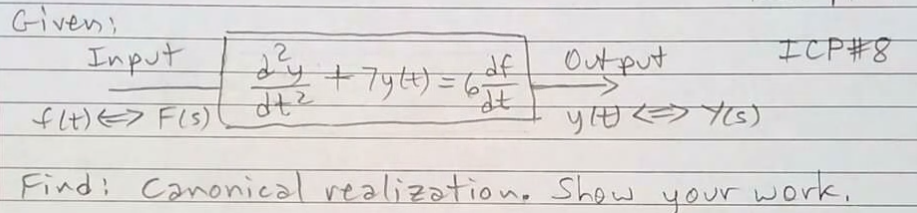 Given:
Input d²y/dt² + 7y(t) = 6 df/dt Output ICP#8
f(t) <=> F(s) y(t) <=> Y(s)
Find: Canonical realization. Show your work.